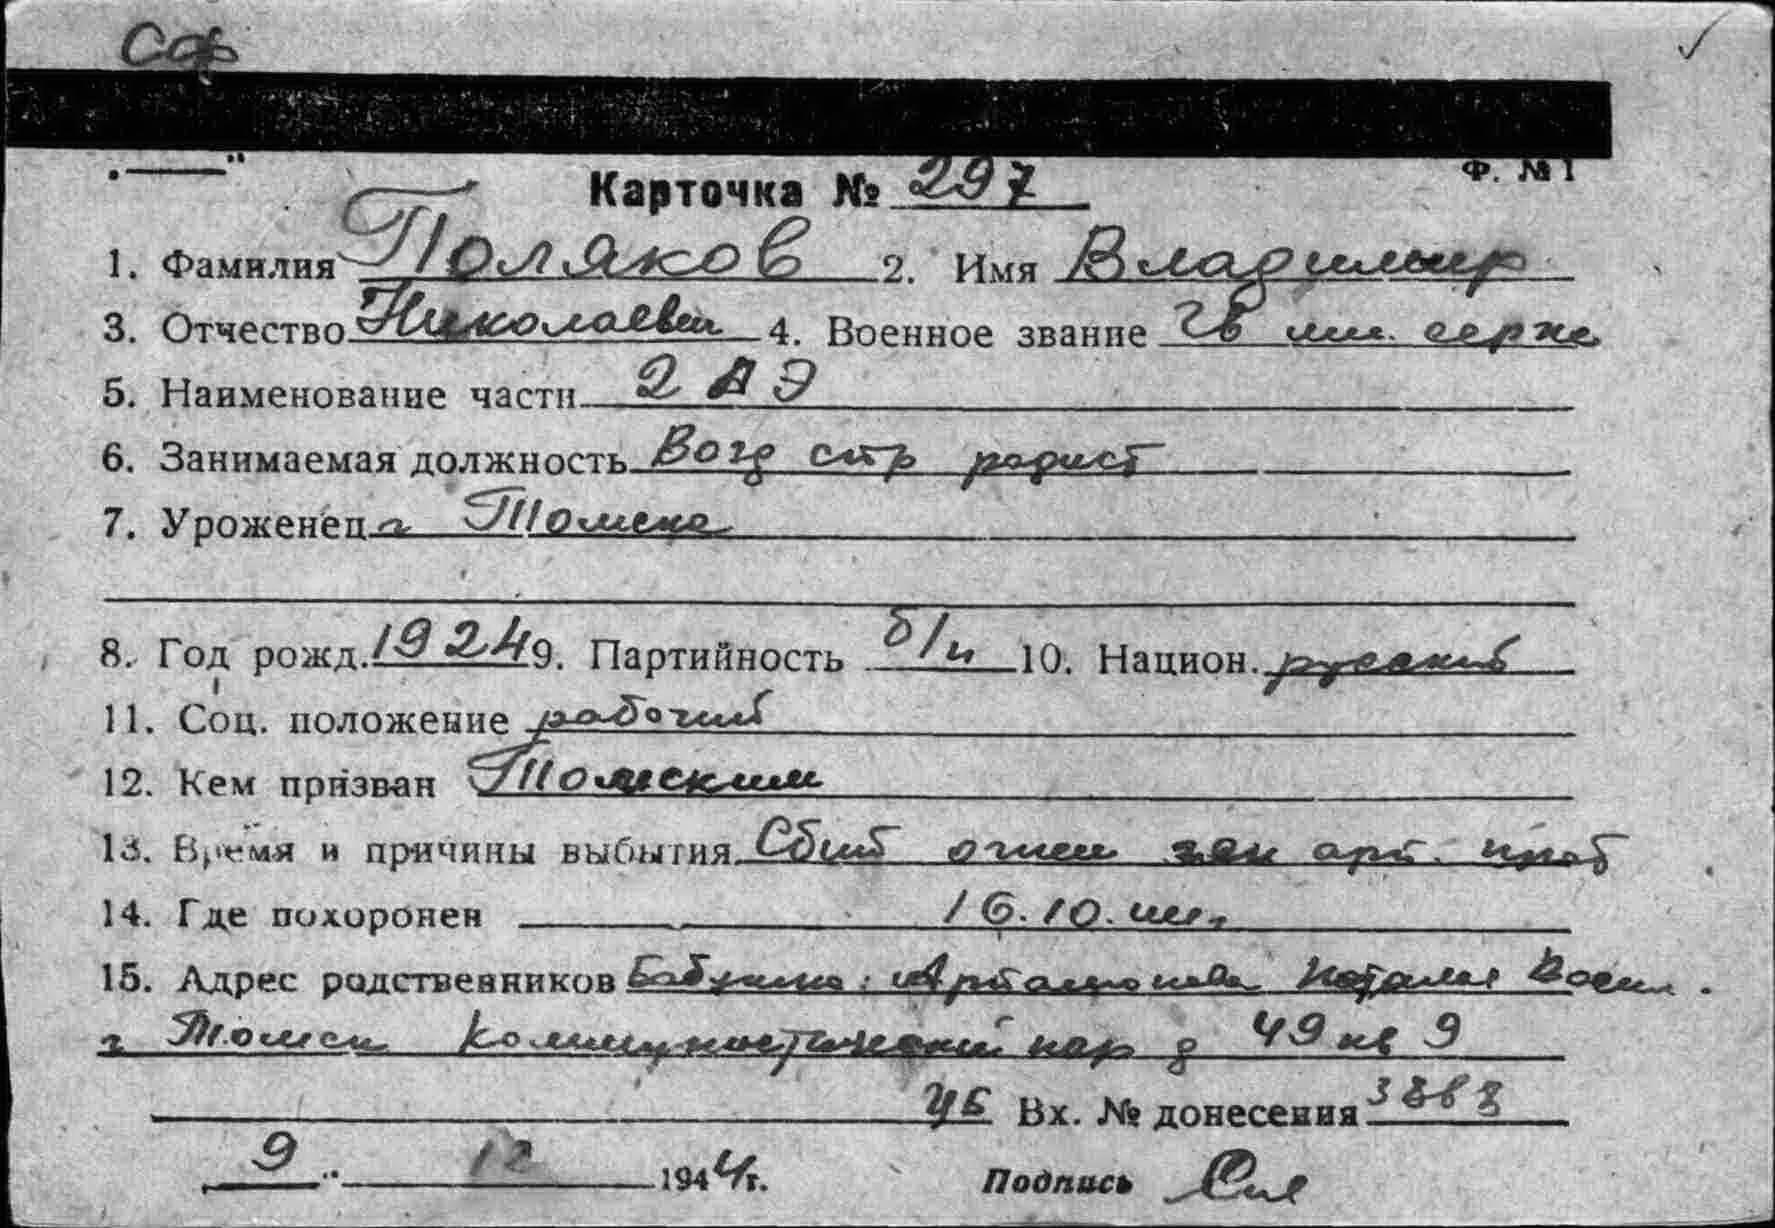 Сф
Ф. №1
Карточка № 297
1. Фамилия Поляков 2. Имя Владимир
3. Отчество Николаевич 4. Военное звание Гв мл. серж
5. Наименование части 2 АЭ
6. Занимаемая должность Возд стр радист
7. Уроженец г Томска
8. Год рожд. 1924 9. Партийность б/п 10. Национ. русский
11. Соц. положение рабочий
12. Кем призван Томским
13. Время и причины выбытия Сбит огнем зен арт. пр-ка
14. Где похоронен 16.10.44г.
15. Адрес родственников Бабушка: Артамонова Наталья Васил.
г Томск Коммунистический пер д 49 кв 9
Вх. № донесения
9 " 12 1944г. Подпись